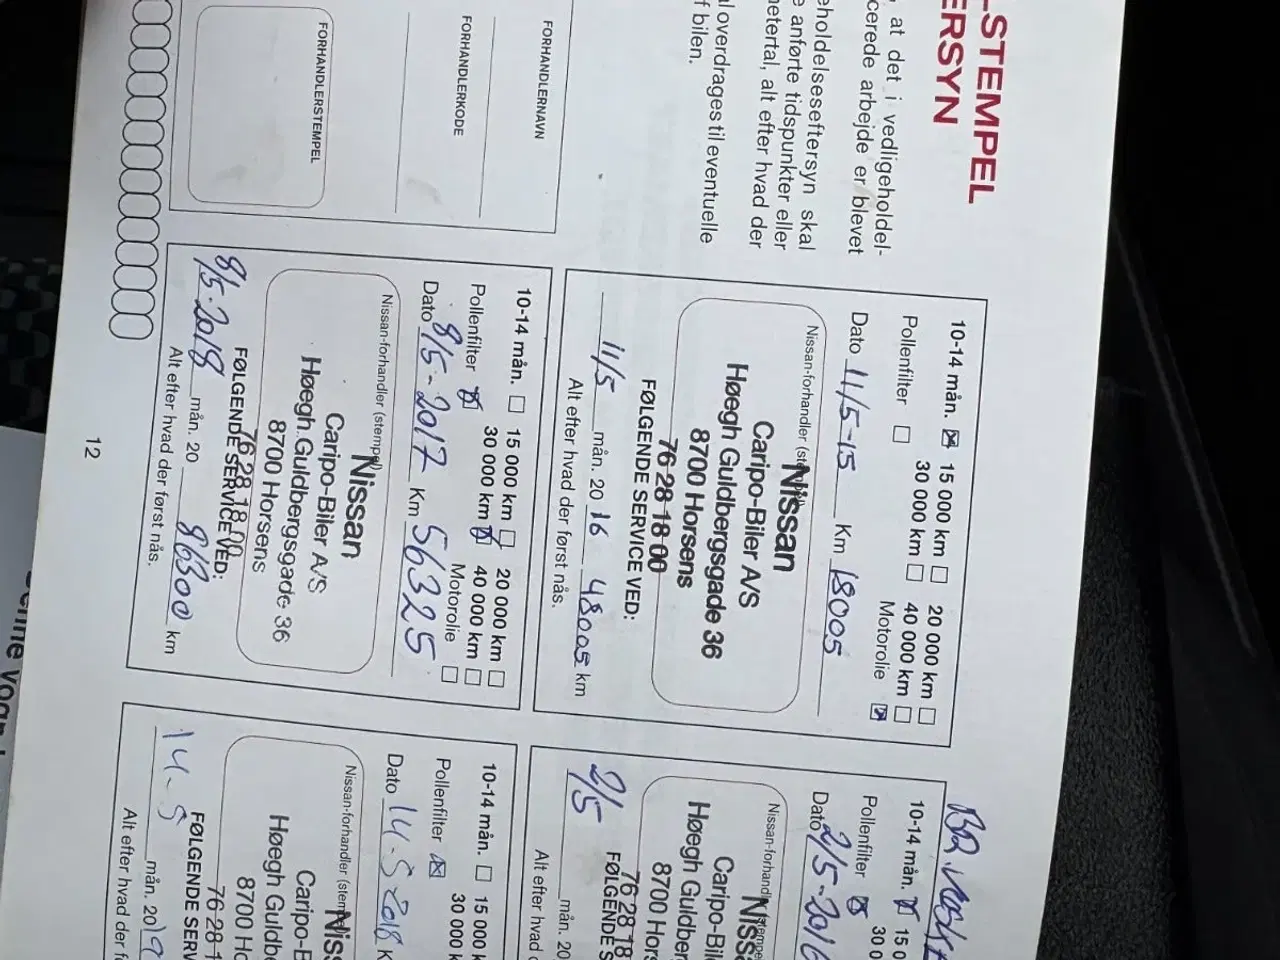 -STEMPEL
ERSYN
, at det i vedligeholdel-
cerede arbejde er blevet
eholdelseseftersyn skal
e anførte tidspunkter eller
netertal, alt efter hvad der
al overdrages til eventuelle
f bilen.
FORHANDLERNAVN
FORHANDLERKODE
FORHANDLERSTEMPEL
10-14 mån. ☒ 15 000 km ☐ 20 000 km ☐
30 000 km ☐ 40 000 km ☐
Pollenfilter ☐ Motorolie ☒
Dato 11/5-15 Km 18005
Nissan-forhandler
Nissan
Caripo-Biler A/S
Høegh Guldbergsgade 36
8700 Horsens
76 28 18 00
FØLGENDE SERVICE VED:
11/5 mån. 20 16 48005 km
Alt efter hvad der først nås.
10-14 mån. ☐ 15 000 km ☐ 20 000 km ☐
30 000 km ☒ 40 000 km ☐
Pollenfilter ☒ Motorolie ☐
Dato 8/5-2017 Km 56325
Nissan-forhandler (stempel)
Nissan
Caripo-Biler A/S
Høegh Guldbergsgade 36
8700 Horsens
76 28 18 00
FØLGENDE SERVICE VED:
8/5-2018 mån. 20 86300 km
Alt efter hvad der først nås.
10-14 mån. ☒ 15 0
30 0
Pollenfilter ☒
Dato 2/5-2016
Nissan-forhandl
Niss
Caripo-Bil
Høegh Guldber
8700 Hors
76 28 18
FØLGENDE S
2/5 mån. 20
Alt efter hvad d
10-14 mån. ☐ 15 000 k
30 000 k
Pollenfilter ☒
Dato 14-5 2018 K
Nissan-forhandler (stem
Niss
Caripo-B
Høegh Guldb
8700 Ho
76 28 1
FØLGENDE SERV
14-5 mån. 2019
Alt efter hvad der f
12